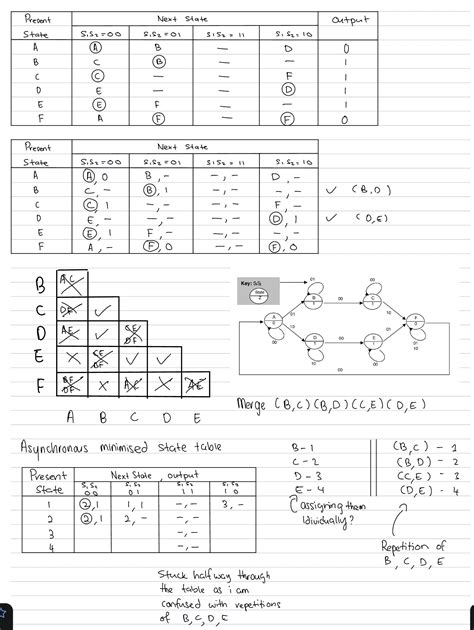 Present Next State Output
State S₁S₂=00 S₁S₂=01 S₁S₂=11 S₁S₂=10
A A B — D 0
B C B — — 1
C C — — F 1
D E — — D 1
E E F — — 1
F A F — F 0
Present Next State
State S₁S₂=00 S₁S₂=01 S₁S₂=11 S₁S₂=10
A A, 0 B, - -, - D, -
B C, - B, 1 -, - -, - ✓ (B,D)
C C, 1 -, - -, - F, -
D E, - -, - -, - D, 1 ✓ (D,E)
E E, 1 F, - -, - -, -
F A, - F, 0 -, - F, 0
B AC
C DF ✓
D AE ✓ CE DF
E X CE DF ✓ ✓
F BF DF X AC X AE
A B C D E
Key: S₁S₂
State
Z
A 0
B 1
C 1
D 1
E 1
F 0
00 01 10
Merge (B,C)(B,D)(C,E)(D,E)
Asynchronous minimised state table
Present Next State, output
State S₁S₂ 00 S₁S₂ 01 S₁S₂ 11 S₁S₂ 10
1 2, 1 1, 1 -, - 3, -
2 2, 1 2, - -, -
3 -, -
4 -, -
B - 1
C - 2
D - 3
E - 4
assigning them
idividually?
(B,C) - 1
(B,D) - 2
(C,E) - 3
(D,E) - 4
Repetition of
B, C, D, E
Stuck half way through
the table as i am
confused with repetitions
of B, C, D, E